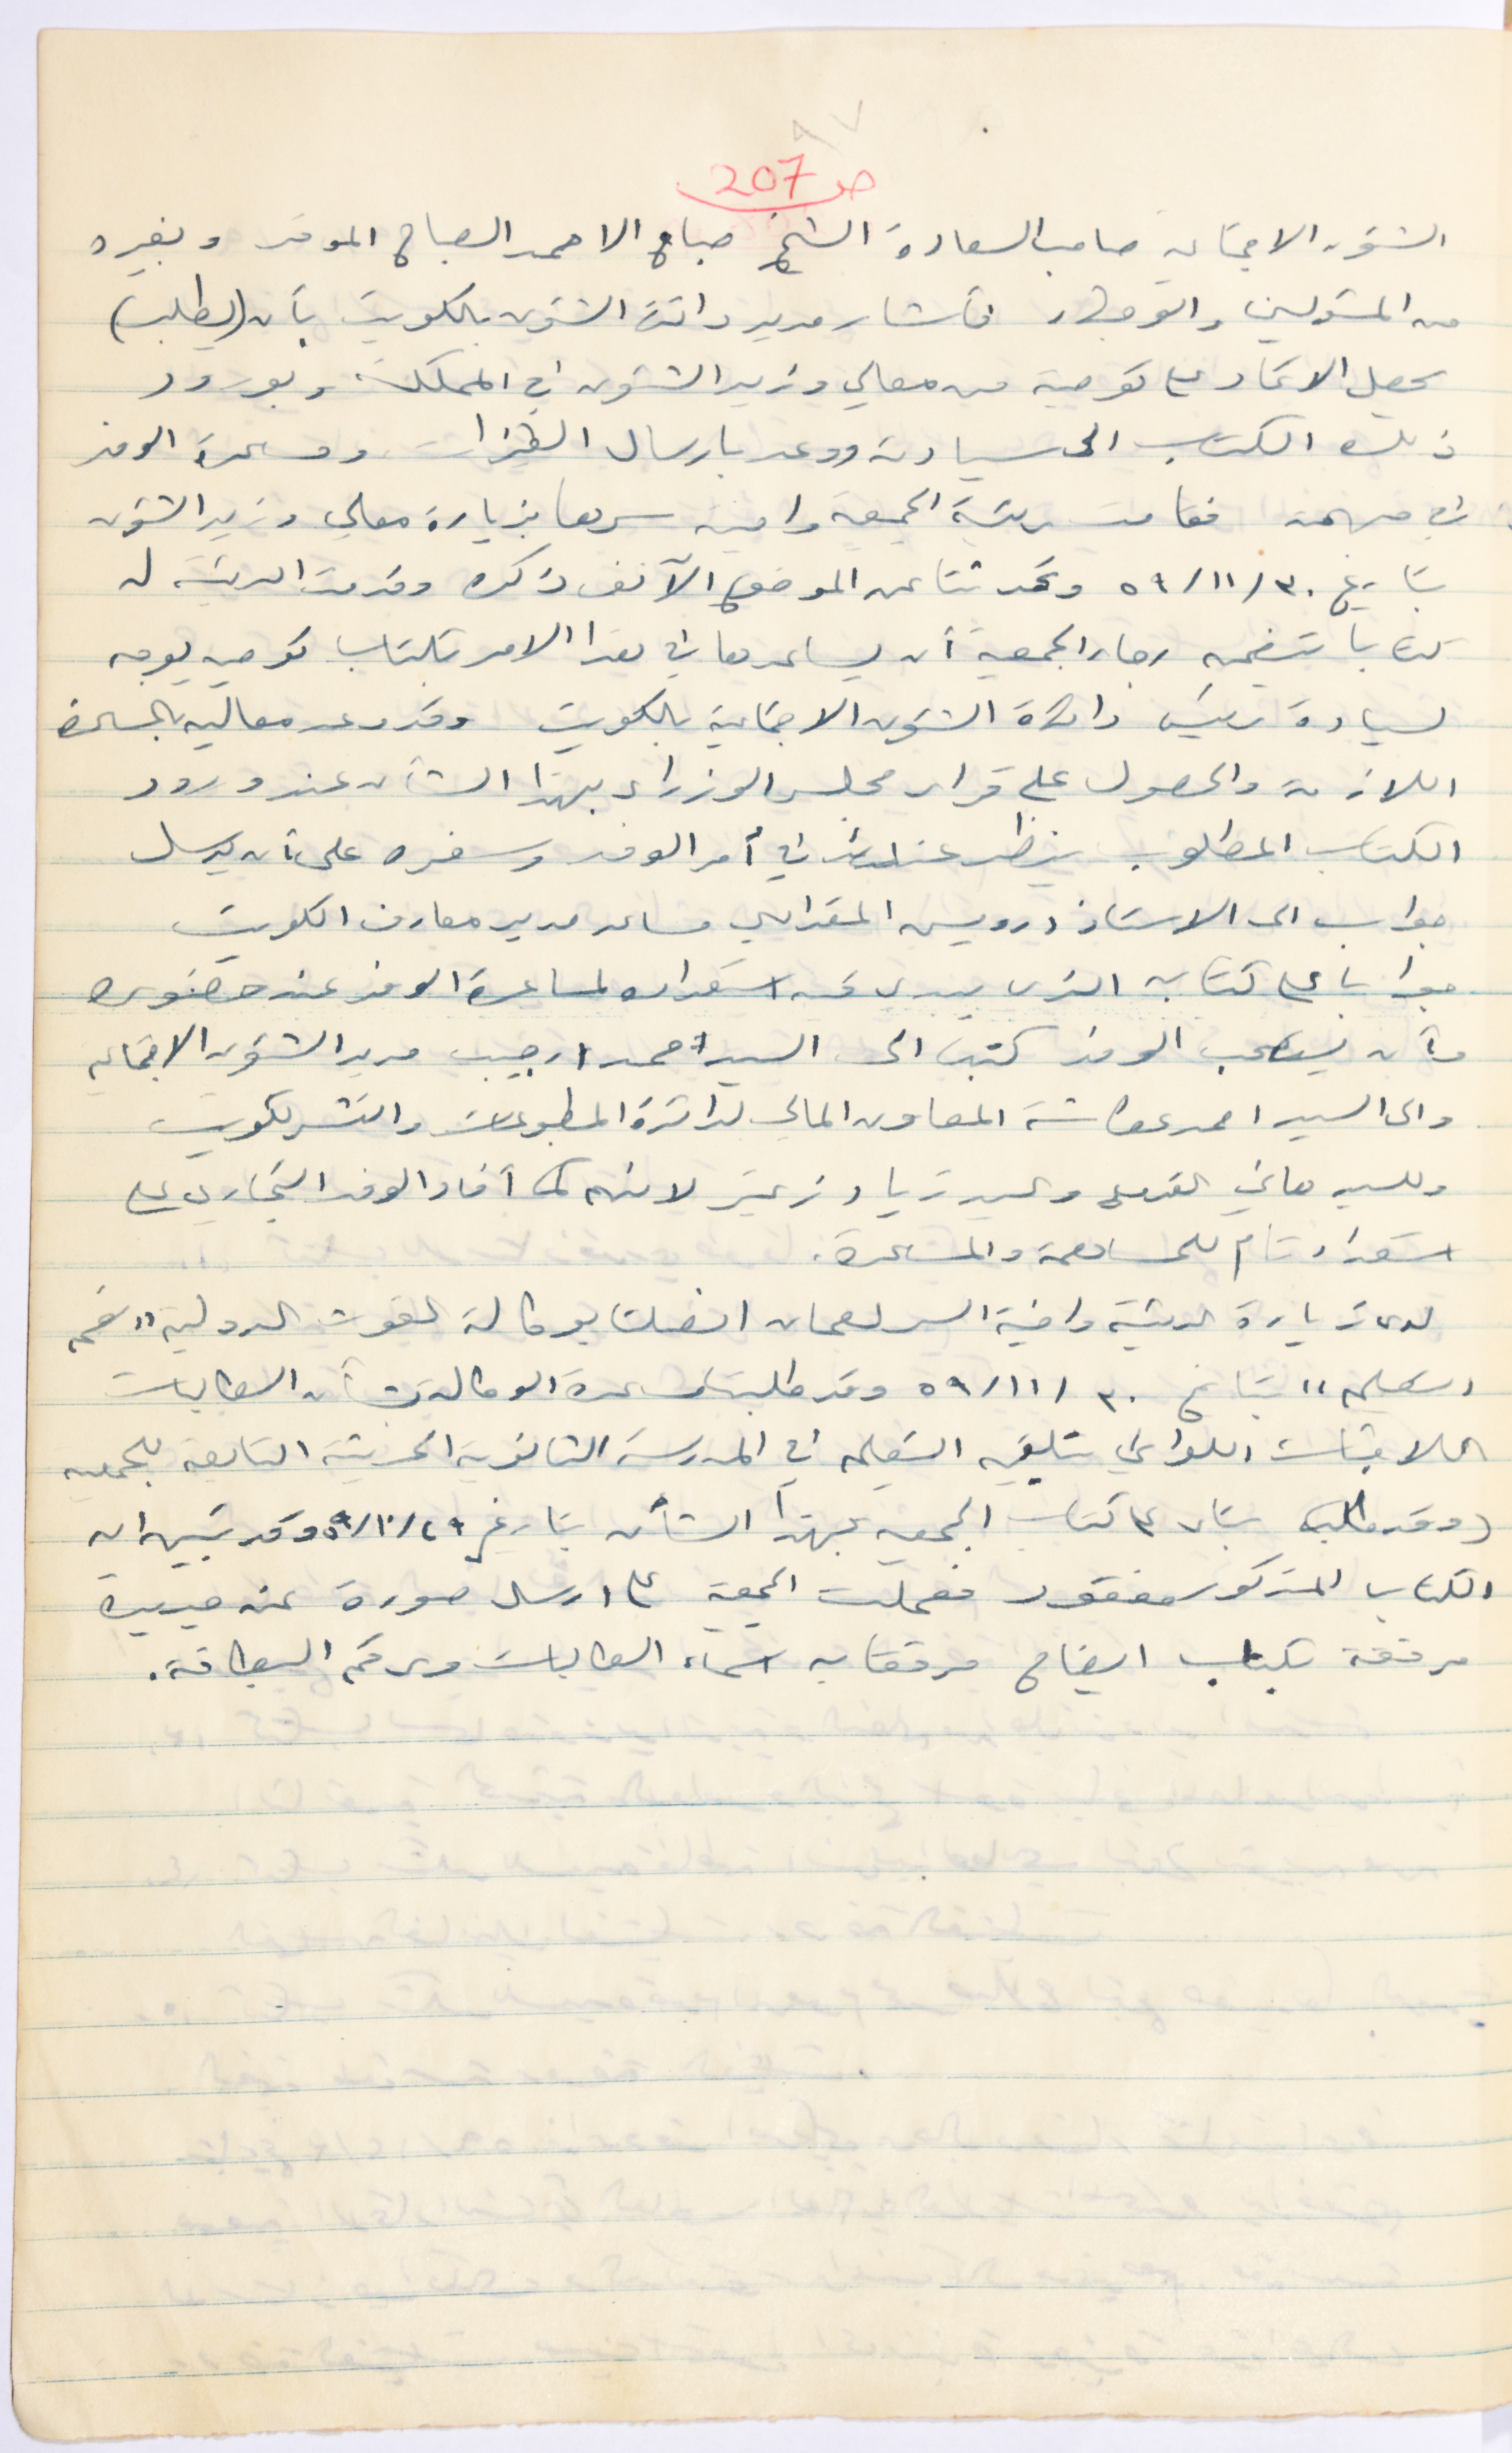 ص 207
الشؤون الاجتماعية صاحب السعادة الشيخ صباح الاحمد الصباح الموقر وبغيره
من المسؤولين والوجهاء فأشار مدير دائرة الشؤون بالكويت بأن (يطلب)
يحصل الاتحاد على توصية من معالي وزير الشؤون في المملكة وبورود
ذلك الكتاب الى سيادته ووعد بارسال الفيزات ومساعدة الوفد
في مهمته فقامت رئيسة الجمعية وامينة سرها بزيارة معالي وزير الشؤون
بتاريخ ٣٠/١١/٥٩ وتحدثتا عن الموضوع الآنف ذكره وقدمت الرئيسة له
كتاباً يتضمن رجاء الجمعية أن يساعدها في هذا الامر بكتاب توصيه يوجه
لسيادة رئيس دائرة الشؤون الاجتماعية بالكويت وقد وعد معاليه بالمساعدة
اللازمة والحصول على قرار مجلس الوزراء بهذا الشأن عند ورود
الكتاب المطلوب ينظر عندئذ في أمر الوفد وسفره على أن يرسل
جواب الى الاستاذ درويش المقدادي مساعد مدير معارف الكويت
جواباً على كتابه الذي يبدي فيه استعداده لمساعدة الوفد عند حضوره
وأن يصطحب الوفد كتباً الى السيد احمد رجيب مدير الشؤون الاجتماعية
والى السيد احمد عكاشة المعاون المالي لدائرة المطبوعات والنشر بالكويت
وللسيد هاني القدومي والسيد زياد زعيتر لانهم كما أفاد الوفد التجاري على
استعداد تام للمساهمة والمساعدة.
لدى زيارة الرئيسة وامينة السر لعمان اتصلتا بوكالة الغوث الدولية "قسم
التعليم" بتاريخ ٣٠/١١/٥٩ وقد طلبتا مساعدة الوكالة بشأن الطالبات
اللاجئات اللواتي يتلقين التعليم في المدرسة الثانوية الحديثة التابعة للجمعية
(وقد طلبتا بناء على كتاب الجمعية بهذا الشأن بتاريخ ٢٩/١٠/٥٩ وقد تبين ان
الكتاب المذكور مفقود فعملت الجمعية على ارسال صورة عنه جديدة
مرفقة بكتاب ايضاح مرفقا به اسماء الطالبات ورقم البطاقة.